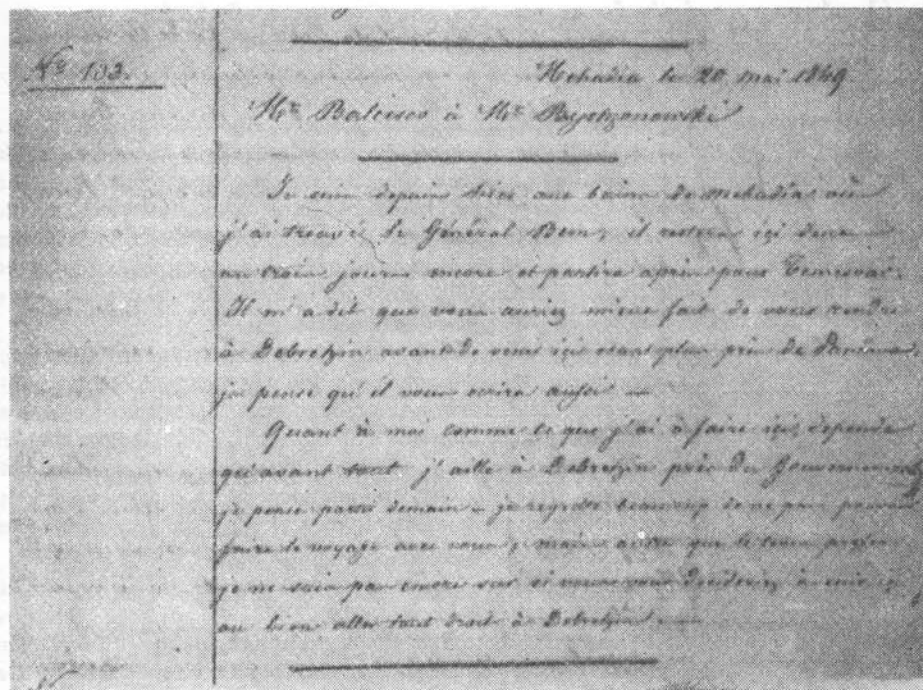 No 103.
Mehadia le 20 mai 1849
Mr Balcesco à Mr Bystrzonowski
Je suis depuis hier aux bains de Mehadia où
j'ai trouvé le Général Bem, il restera içi deux
ou trois jours encore et partira après pour Temesvar.
Il m'a dit que vous auriez mieux fait de vous rendre
à Debretzin avant de venir içi étant plus près de
je pense qu'il vous écrira aussi —
Quant à moi comme ce que j'ai à faire içi, dépend
qu'avant tout j'aille à Debretzin près du Gouvernement
je pense partir demain – je regrette beaucoup de ne pas pouvoir
faire le voyage avec vous, mais outre que le tems presse
je ne suis pas encore sûr si vous vous décideriez à venir içi
ou bien aller tout droit à Debretzin. —